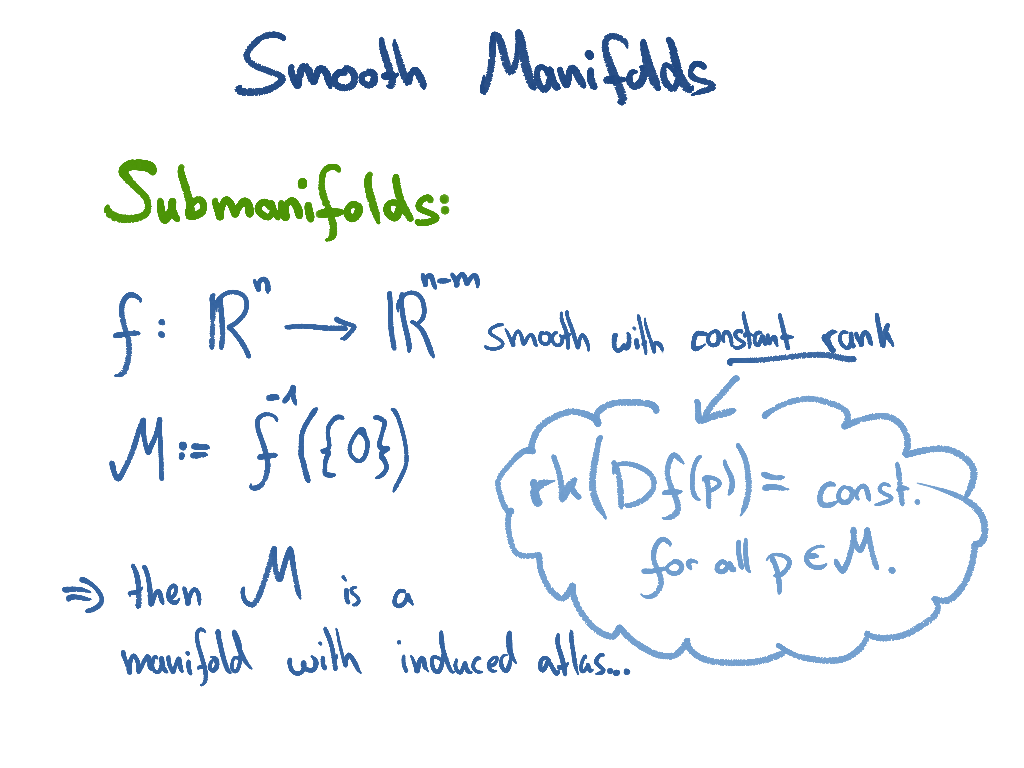 Smooth Manifolds
Submanifolds:
f: ℝⁿ → ℝⁿ⁻ᵐ smooth with constant rank
M := f⁻¹({0})
rk(Df(p)) = const.
for all p ∈ M.
⇒ then M is a
manifold with induced atlas...